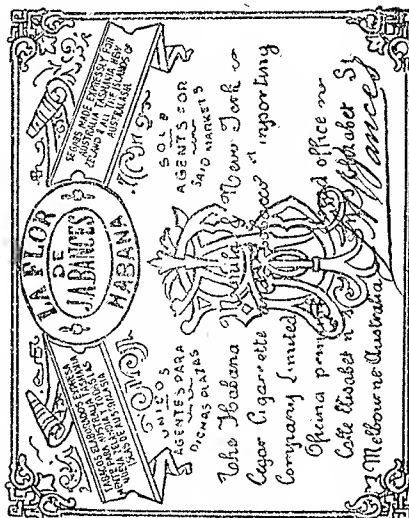 LA FLOR
DE
J.A.BANCES
HABANA
TABACOS ELABORADOS
PARA AUSTRALIA
AUSTRALASIA
SEGARS MADE EXPRESSLY FOR
AUSTRALIA TASMANIA NEW
ZEALAND & ALL THE ISLANDS OF
AUSTRALASIA
UNICOS
AGENTES PARA
DICHAS PLAZAS
SOLE
AGENTS FOR
SAID MARKETS
The Habana Manila & New York
Cigar Cigarrette Tobacco importing
Company Limited
Oficina office
Calle Elisabet St
Melbourne Australia
JABances